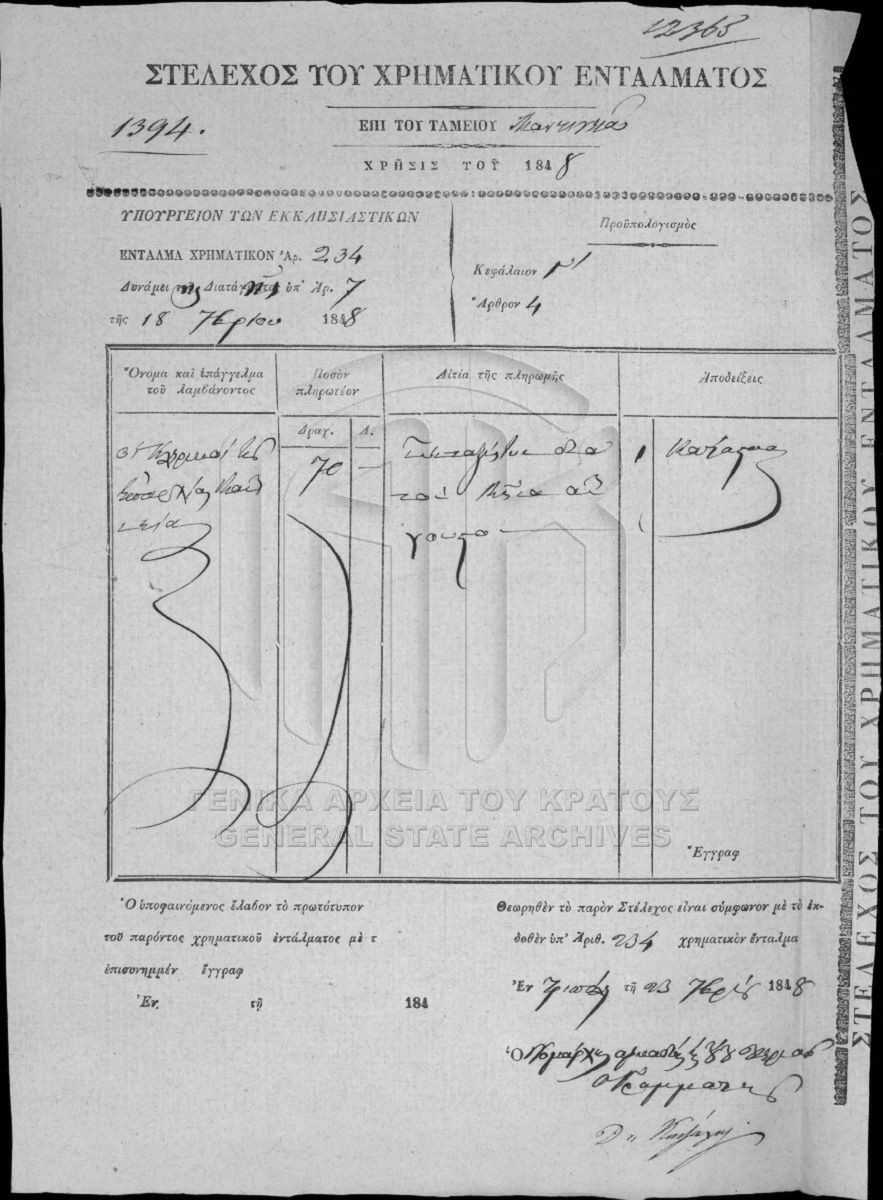 12365
ΣΤΕΛΕΧΟΣ ΤΟΥ ΧΡΗΜΑΤΙΚΟΥ ΕΝΤΑΛΜΑΤΟΣ
1394.
ΕΠΙ ΤΟΥ ΤΑΜΕΙΟΥ Μαντινείας
ΧΡΗΣΙΣ ΤΟΥ 1848
ΥΠΟΥΡΓΕΙΟΝ ΤΩΝ ΕΚΚΛΗΣΙΑΣΤΙΚΩΝ
ΕΝΤΑΛΜΑ ΧΡΗΜΑΤΙΚΟΝ Ἀρ. 234
Δυνάμει της Διαταγῆς ὑπ' Ἀρ. 7
τῆς 18 7βρίου 1848
Προϋπολογισμὸς
Κεφάλαιον Γ'
Ἄρθρον 4
Ὄνομα καὶ ἐπάγγελμα τοῦ λαμβάνοντος
Ποσὸν πληρωτέον
Αἰτία τῆς πληρωμῆς
Ἀποδείξεις
Δραχ. Λ.
70 —
1
γουστο
Ἔγγραφ
Ὁ ὑποφαινόμενος ἔλαβον τὸ πρωτότυπον
τοῦ παρόντος χρηματικοῦ ἐντάλματος μὲ τ
ἐπισυνημμέν ἔγγραφ
Ἐν τῇ 184
Θεωρηθὲν τὸ παρὸν Στέλεχος εἶναι σύμφωνον μὲ τὸ ἐκ-
δοθὲν ὑπ' Ἀριθ. 234 χρηματικὸν ἔνταλμα
Ἐν Τριπόλει τῇ 23 7βρίου 1848
Ὁ Νομάρχης
ὁ Γραμματεὺς
ΓΕΝΙΚΑ ΑΡΧΕΙΑ ΤΟΥ ΚΡΑΤΟΥΣ
GENERAL STATE ARCHIVES
ΣΤΕΛΕΧΟΣ ΤΟΥ ΧΡΗΜΑΤΙΚΟΥ ΕΝΤΑΛΜΑΤΟΣ